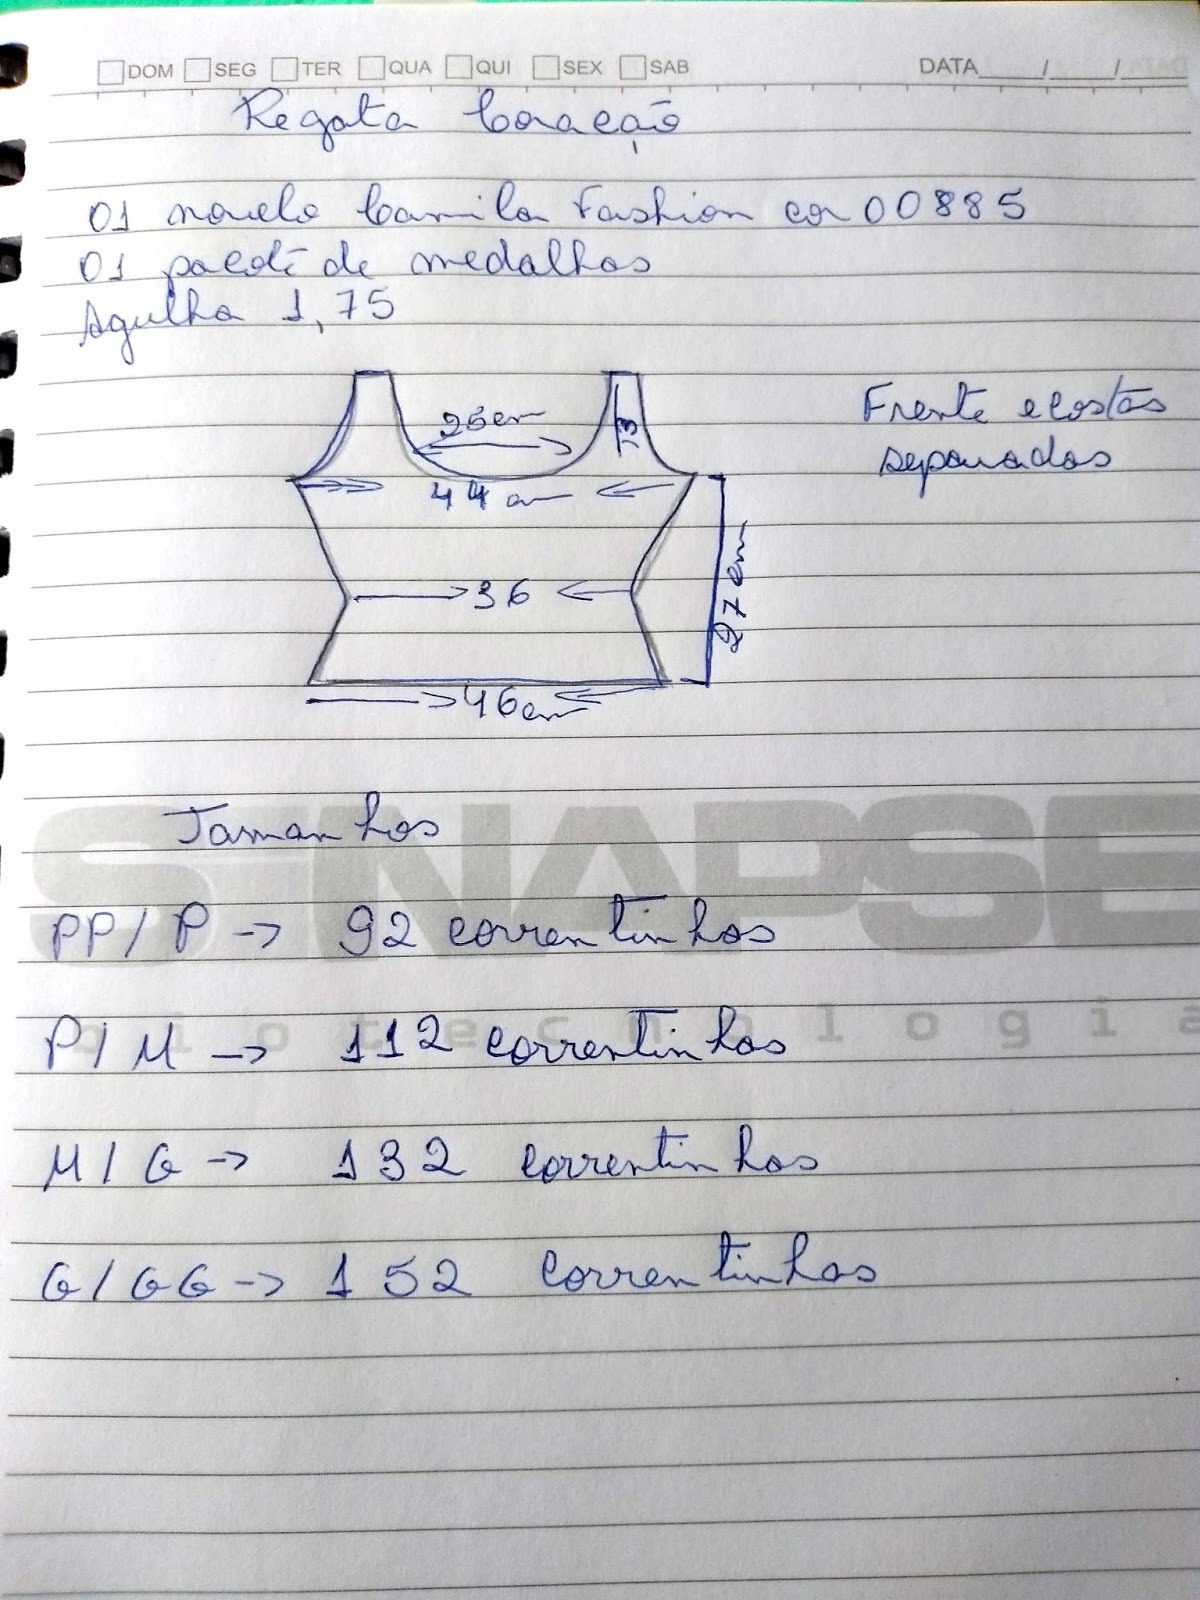 DOM SEG TER QUA QUI SEX SAB DATA___/___/___
Regata Coração
01 novelo Camila Fashion cor 00885
01 pacote de medalhas
Agulha 1,75
Frente e costas
separadas
25cm
13
44 cm
36
27cm
46cm
Tamanhos
SINAPSE
biotecnologia
PP/P -> 92 correntinhas
P/M -> 112 correntinhas
M/G -> 132 correntinhas
G/GG -> 152 correntinhas